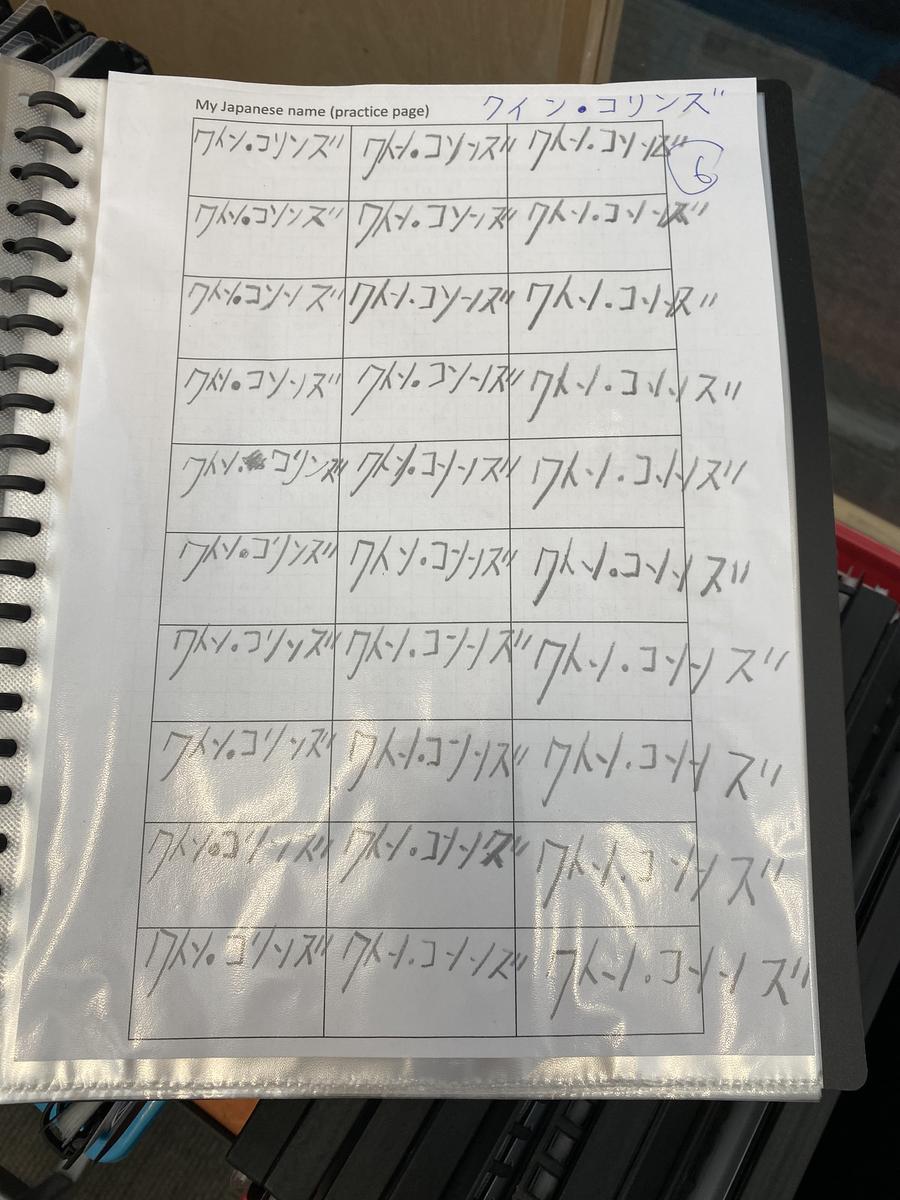 My Japanese name (practice page) クイン・コリンズ
クイン・コリンズ クイン・コリンズ クイン・コリンズ
6
クイン・コリンズ クイン・コリンズ クイン・コリンズ
クイン・コリンズ クイン・コリンズ クイン・コリンズ
クイン・コリンズ クイン・コリンズ クイン・コリンズ
クイン・コリンズ クイン・コリンズ クイン・コリンズ
クイン・コリンズ クイン・コリンズ クイン・コリンズ
クイン・コリンズ クイン・コリンズ クイン・コリンズ
クイン・コリンズ クイン・コリンズ クイン・コリンズ
クイン・コリンズ クイン・コリンズ クイン・コリンズ
クイン・コリンズ クイン・コリンズ クイン・コリンズ